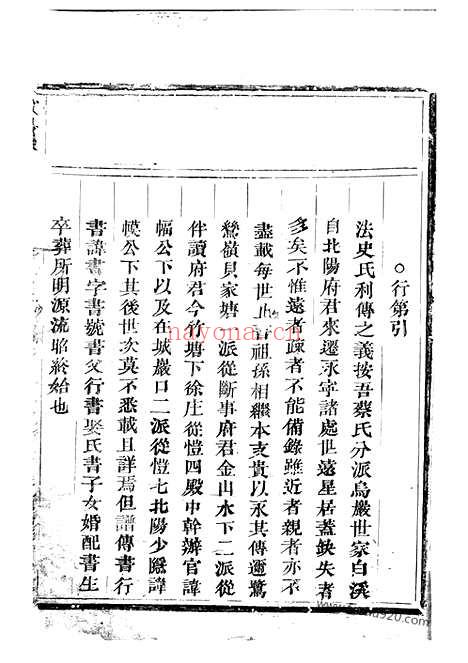 ○行第引
法史氏利傳之義按吾蔡氏分派烏巖世家白溪
自北陽府君來遷永宁諸處世遠星居蓋缺失者
多矣不惟遠者疎者不能備錄雖近者親者亦不
盡載每世止 祖孫相繼本支貴以永其傳邇驚
鷲嶺貝家塘二派從斷事府君金山水下二派從
伴讀府君今竹塘下徐庄從愷四殿中幹辦官諱
幅公下以及在城巖口二派從愷七北陽少隱諱
模公下其後世次莫不悉載且詳焉但譜傳書行
書諱書字書號書父行書娶氏書子女婚配書生
卒葬所明源流昭終始也
nayona.cn